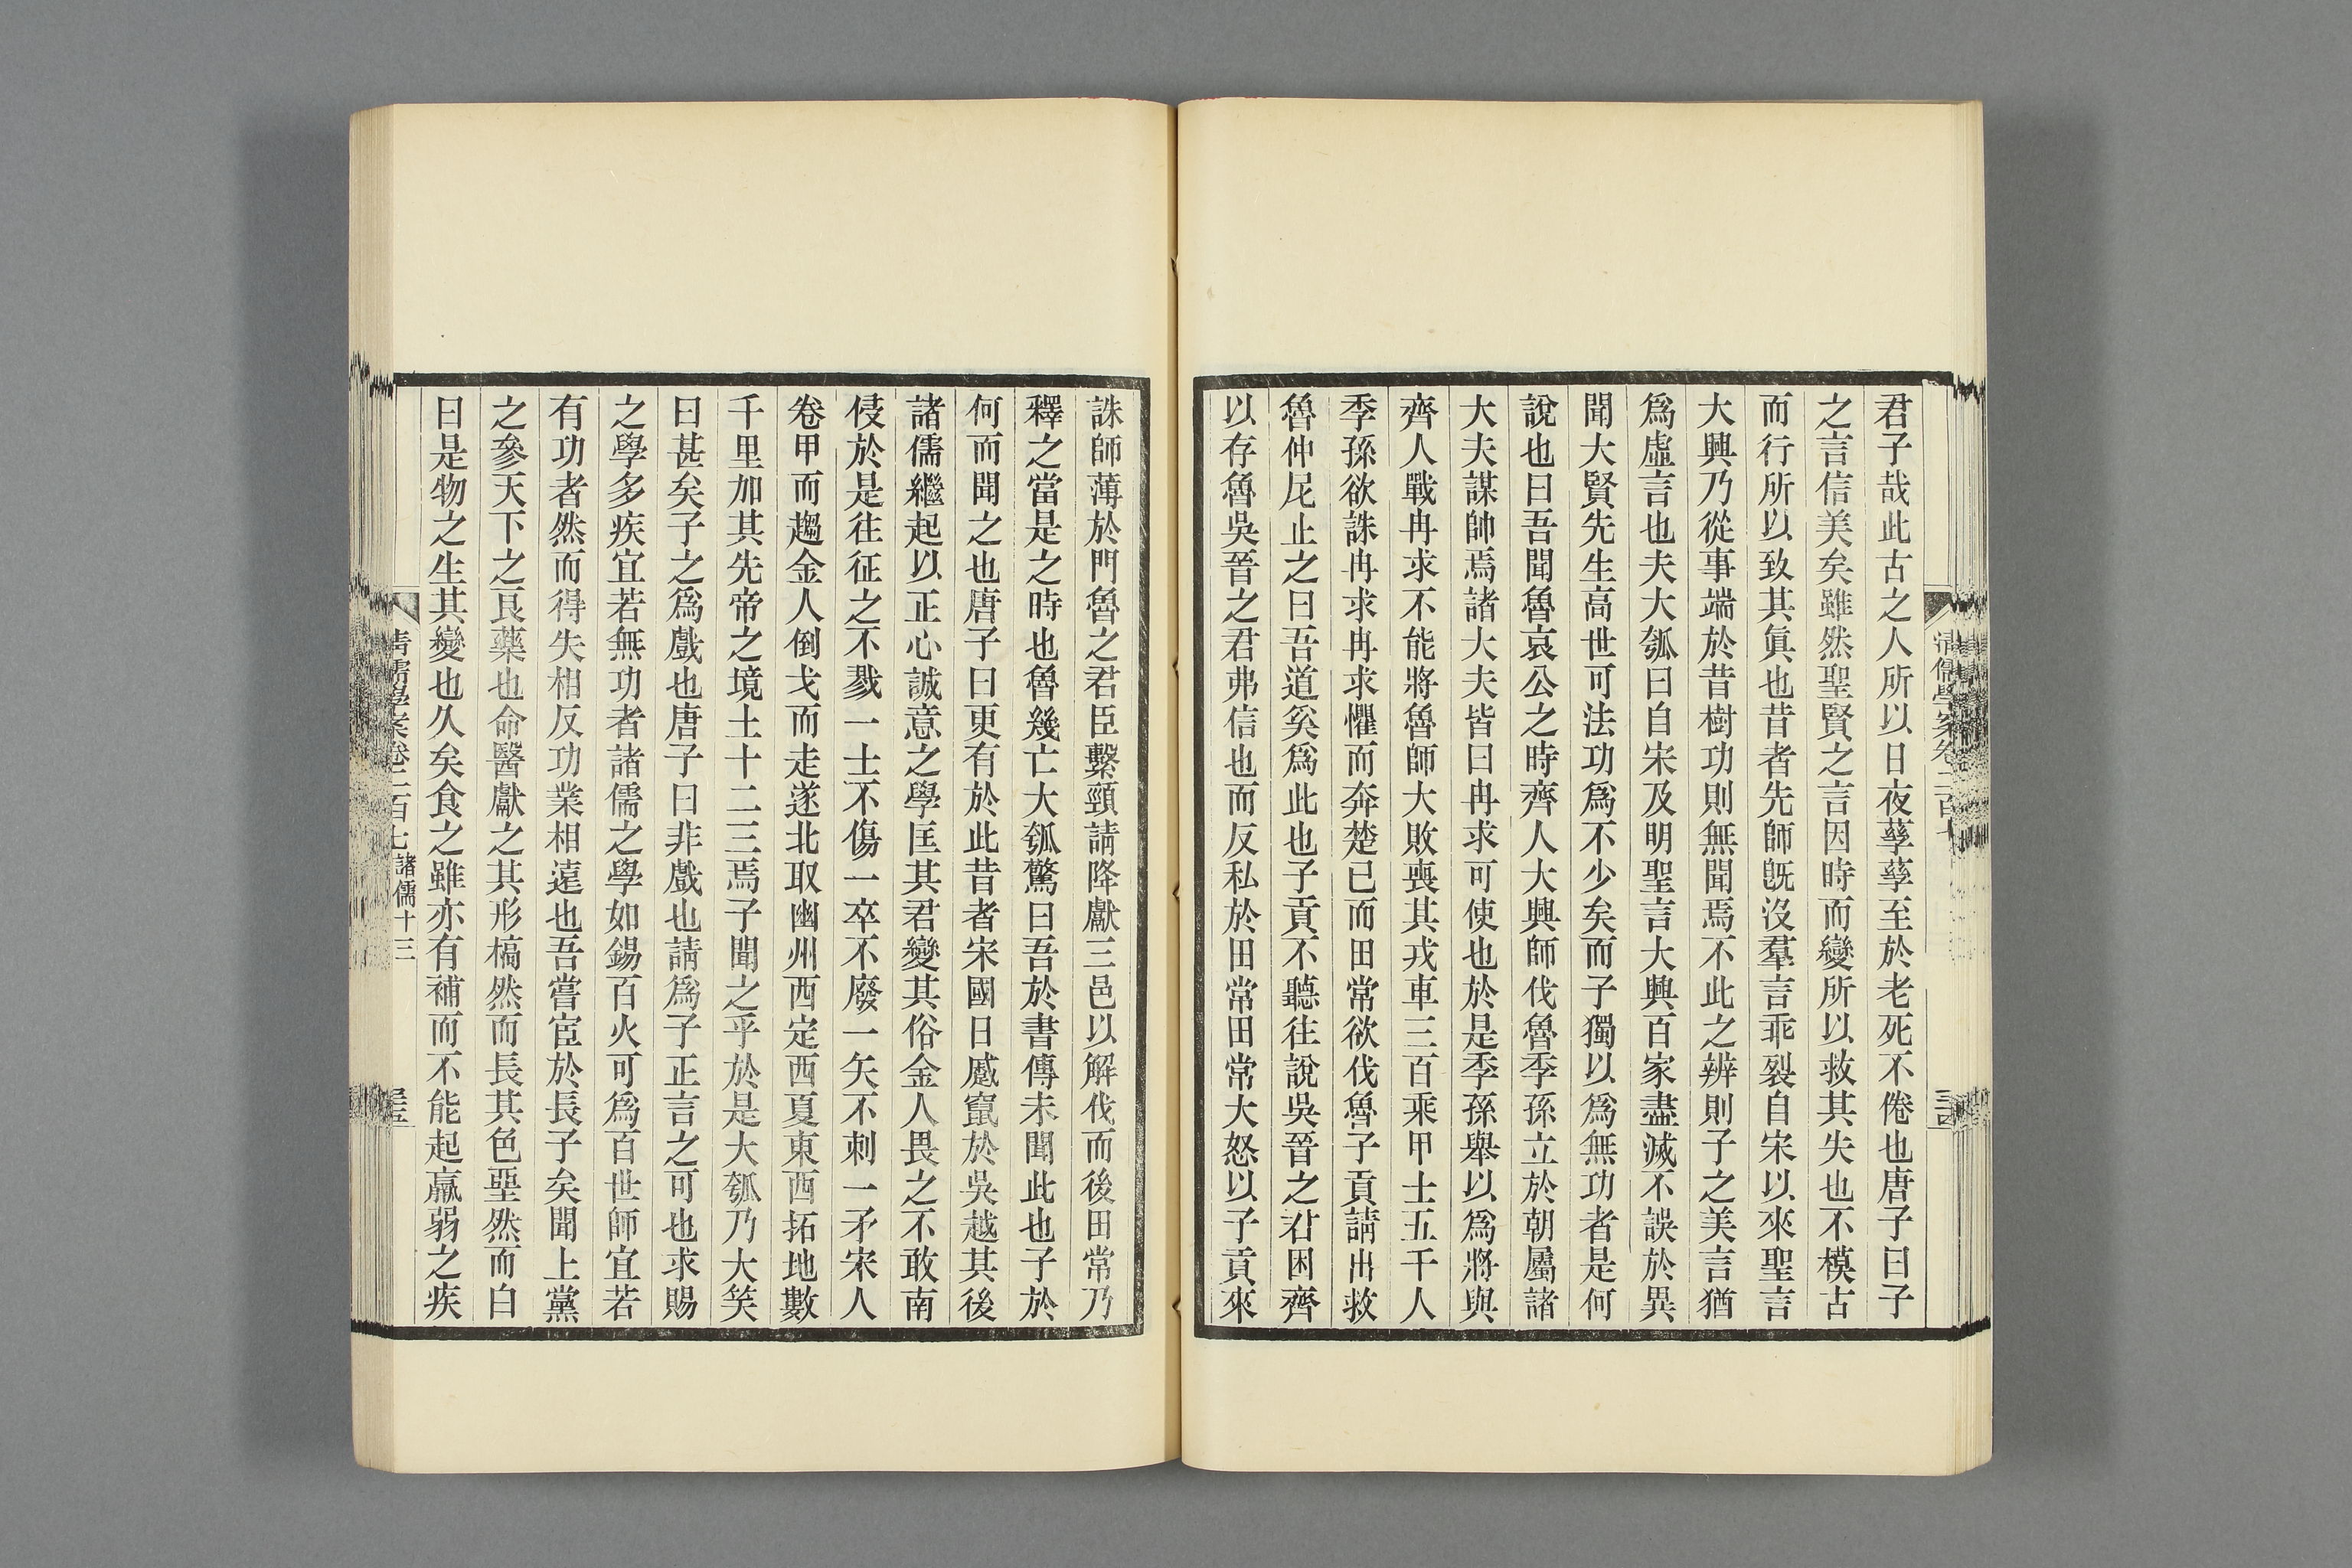 君子哉此古之人所以日夜孳孳至於老死不倦也唐子曰子
之言信美矣雖然聖賢之言因時而變所以救其失也不模古
而行所以致其眞也昔者先師旣沒羣言乖裂自宋以來聖言
大興乃從事端於昔樹功則無聞焉不此之辨則子之美言猶
爲虛言也夫大瓠曰自宋及明聖言大興百家盡滅不誤於異
聞大賢先生高世可法功爲不少矣而子獨以爲無功者是何
說也曰吾聞魯哀公之時齊人大興師伐魯季孫立於朝屬諸
大夫謀帥焉諸大夫皆曰冉求可使也於是季孫舉以爲將與
齊人戰冉求不能將魯師大敗喪其戎車三百乘甲士五千人
季孫欲誅冉求冉求懼而奔楚已而田常欲伐魯子貢請出救
魯仲尼止之曰吾道奚爲此也子貢不聽往說吳晉之君困齊
以存魯吳晉之君弗信也而反私於田常田常大怒以子貢來
清儒學案卷二百七
三四
誅師薄於門魯之君臣繫頸請降獻三邑以解伐而後田常乃
釋之當是之時也魯幾亡大瓠驚曰吾於書傳未聞此也子於
何而聞之也唐子曰更有於此昔者宋國日蹙竄於吳越其後
諸儒繼起以正心誠意之學匡其君變其俗金人畏之不敢南
侵於是往征之不戮一士不傷一卒不廢一矢不刺一矛宋人
卷甲而趨金人倒戈而走遂北取幽州西定西夏東西拓地數
千里加其先帝之境土十二三焉子聞之乎於是大瓠乃大笑
曰甚矣子之爲戲也唐子曰非戲也請爲子正言之可也求賜
之學多疾宜若無功者諸儒之學如錫百火可爲百世師宜若
有功者然而得失相反功業相遠也吾嘗宦於長子矣聞上黨
之參天下之良藥也命醫獻之其形槁然而長其色堊然而白
曰是物之生其變也久矣食之雖亦有補而不能起羸弱之疾
清儒學案卷二百七 諸儒十三